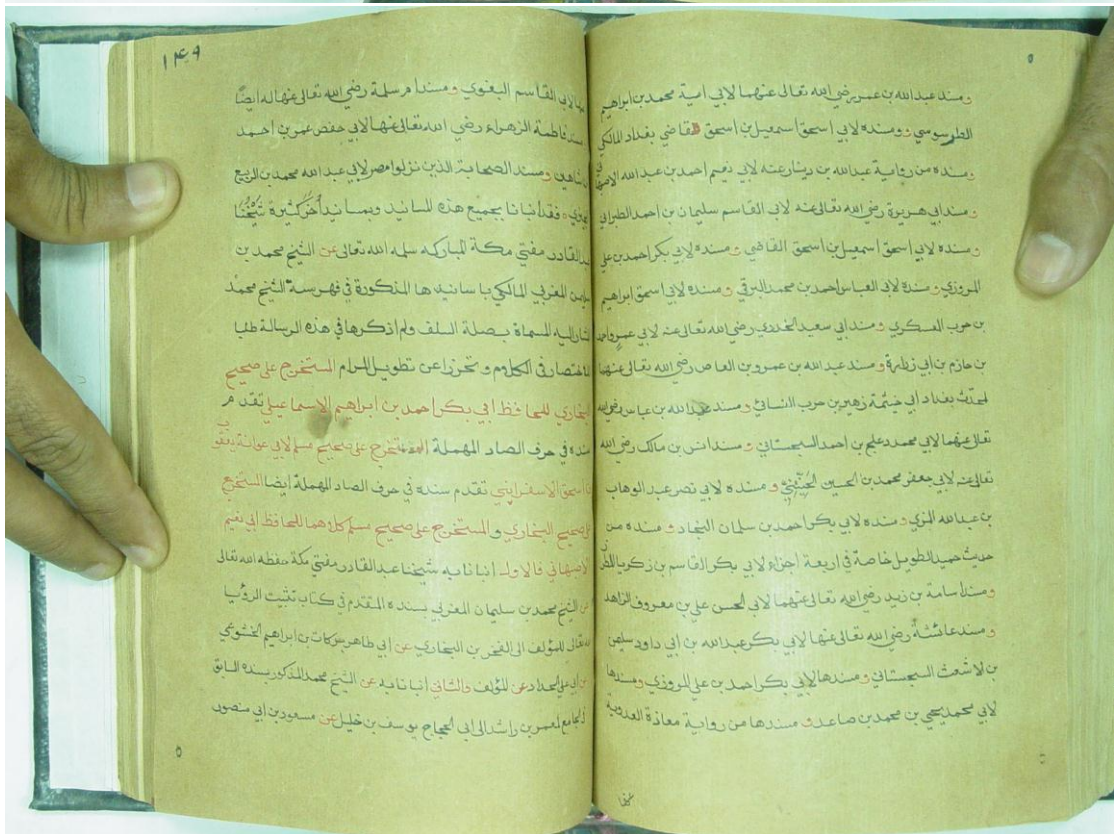 ومسند عبدالله بن عمر رضي الله تعالى عنهما لابي امية محمد بن ابراهيم
الطرسوسي ومسنده لابي اسحق اسمعيل بن اسحق قاضي بغداد المالكي
ومسنده من رواية عبدالله بن دينار عنه لابي نعيم احمد بن عبد الله الاصبهاني
ومسند ابي هريرة رضي الله تعالى عنه لابي القاسم سليمان بن احمد الطبراني
ومسنده لابي اسحق اسمعيل بن اسحق القاضي ومسنده لابي بكر احمد بن علي
المروزي ومسنده لابي العباس احمد بن محمد البرقي ومسنده لابي اسحق ابراهيم
بن حرب العسكري ومسند ابي سعيد الخدري رضي الله تعالى عنه لابي عمرو احمد
بن حازم بن ابي غرزة ومسند عبد الله بن عمرو بن العاص رضي الله تعالى عنهما
لمحدث بغداد ابي خيثمة زهير بن حرب النسائي ومسند عبد الله بن عباس رضي الله
تعالى عنهما لابي محمد دعلج بن احمد السجستاني ومسند انس بن مالك رضي الله
تعالى عنه لابي جعفر محمد بن الحسين الحنيني ومسنده لابي نصر عبد الوهاب
بن عبد الله المزي ومسنده لابي بكر احمد بن سلمان النجاد ومسنده من
حديث حميد الطويل خاصة في اربعة اجزاء لابي بكر القاسم بن زكريا المطرز
ومسند اسامة بن زيد رضي الله تعالى عنهما لابي الحسن علي بن معروف الزاهد
ومسند عائشة رضي الله تعالى عنها لابي بكر عبد الله بن ابي داود سليمن
بن لاشعث السجستاني ومسندها لابي بكر احمد بن علي المروزي ومسندها
لابي محمد يحيى بن محمد بن صاعد ومسندها من رواية معاذة العدوية
١٤٩
لابي القاسم البغوي ومسند ام سلمة رضي الله تعالى عنها له ايضا
مسند فاطمة الزهراء رضي الله تعالى عنها لابي حفص عمر بن احمد
بن شاهين ومسند الصحابة الذين نزلوا مصر لابي عبد الله محمد بن الربيع
الجيزي فقد انبانا بجميع هذه المسانيد وبمسانيد اخر كثيرة شيخنا
عبد القادر مفتي مكة المباركه سلمه الله تعالى عن الشيخ محمد بن
سليمن المغربي المالكي باسانيدها المذكورة في فهرسة الشيخ محمد
المشار اليه المسماة بصلة السلف ولم اذكرها في هذه الرسالة طلبا
للاختصار في الكلام وتحرزا عن تطويل المرام المستخرج على صحيح
البخاري للحافظ ابي بكر احمد بن ابراهيم الاسماعيلي تقدم
سنده في حرف الصاد المهملة المستخرج على صحيح مسلم لابي عوانة يعقوب
بن اسحق الاسفرايني تقدم سنده في حرف الصاد المهملة ايضا المستخرج
على صحيح البخاري والمستخرج على صحيح مسلم كلاهما للحافظ ابي نعيم
الاصبهاني فالاول انبانا به شيخنا عبد القادر مفتي مكة حفظه الله تعالى
عن الشيخ محمد بن سليمان المغربي بسنده المتقدم في كتاب تثبيت الرؤيا
لله تعالى للمؤلف الى الفخر بن البخاري عن ابي طاهر بركات بن ابراهيم الخشوعي
عن ابي علي الحداد عن المؤلف والثاني انبانا به عن الشيخ محمد المذكور بسنده السابق
في الجامع لمعمر بن راشد الى ابي الحجاج يوسف بن خليل عن مسعود بن ابي منصور